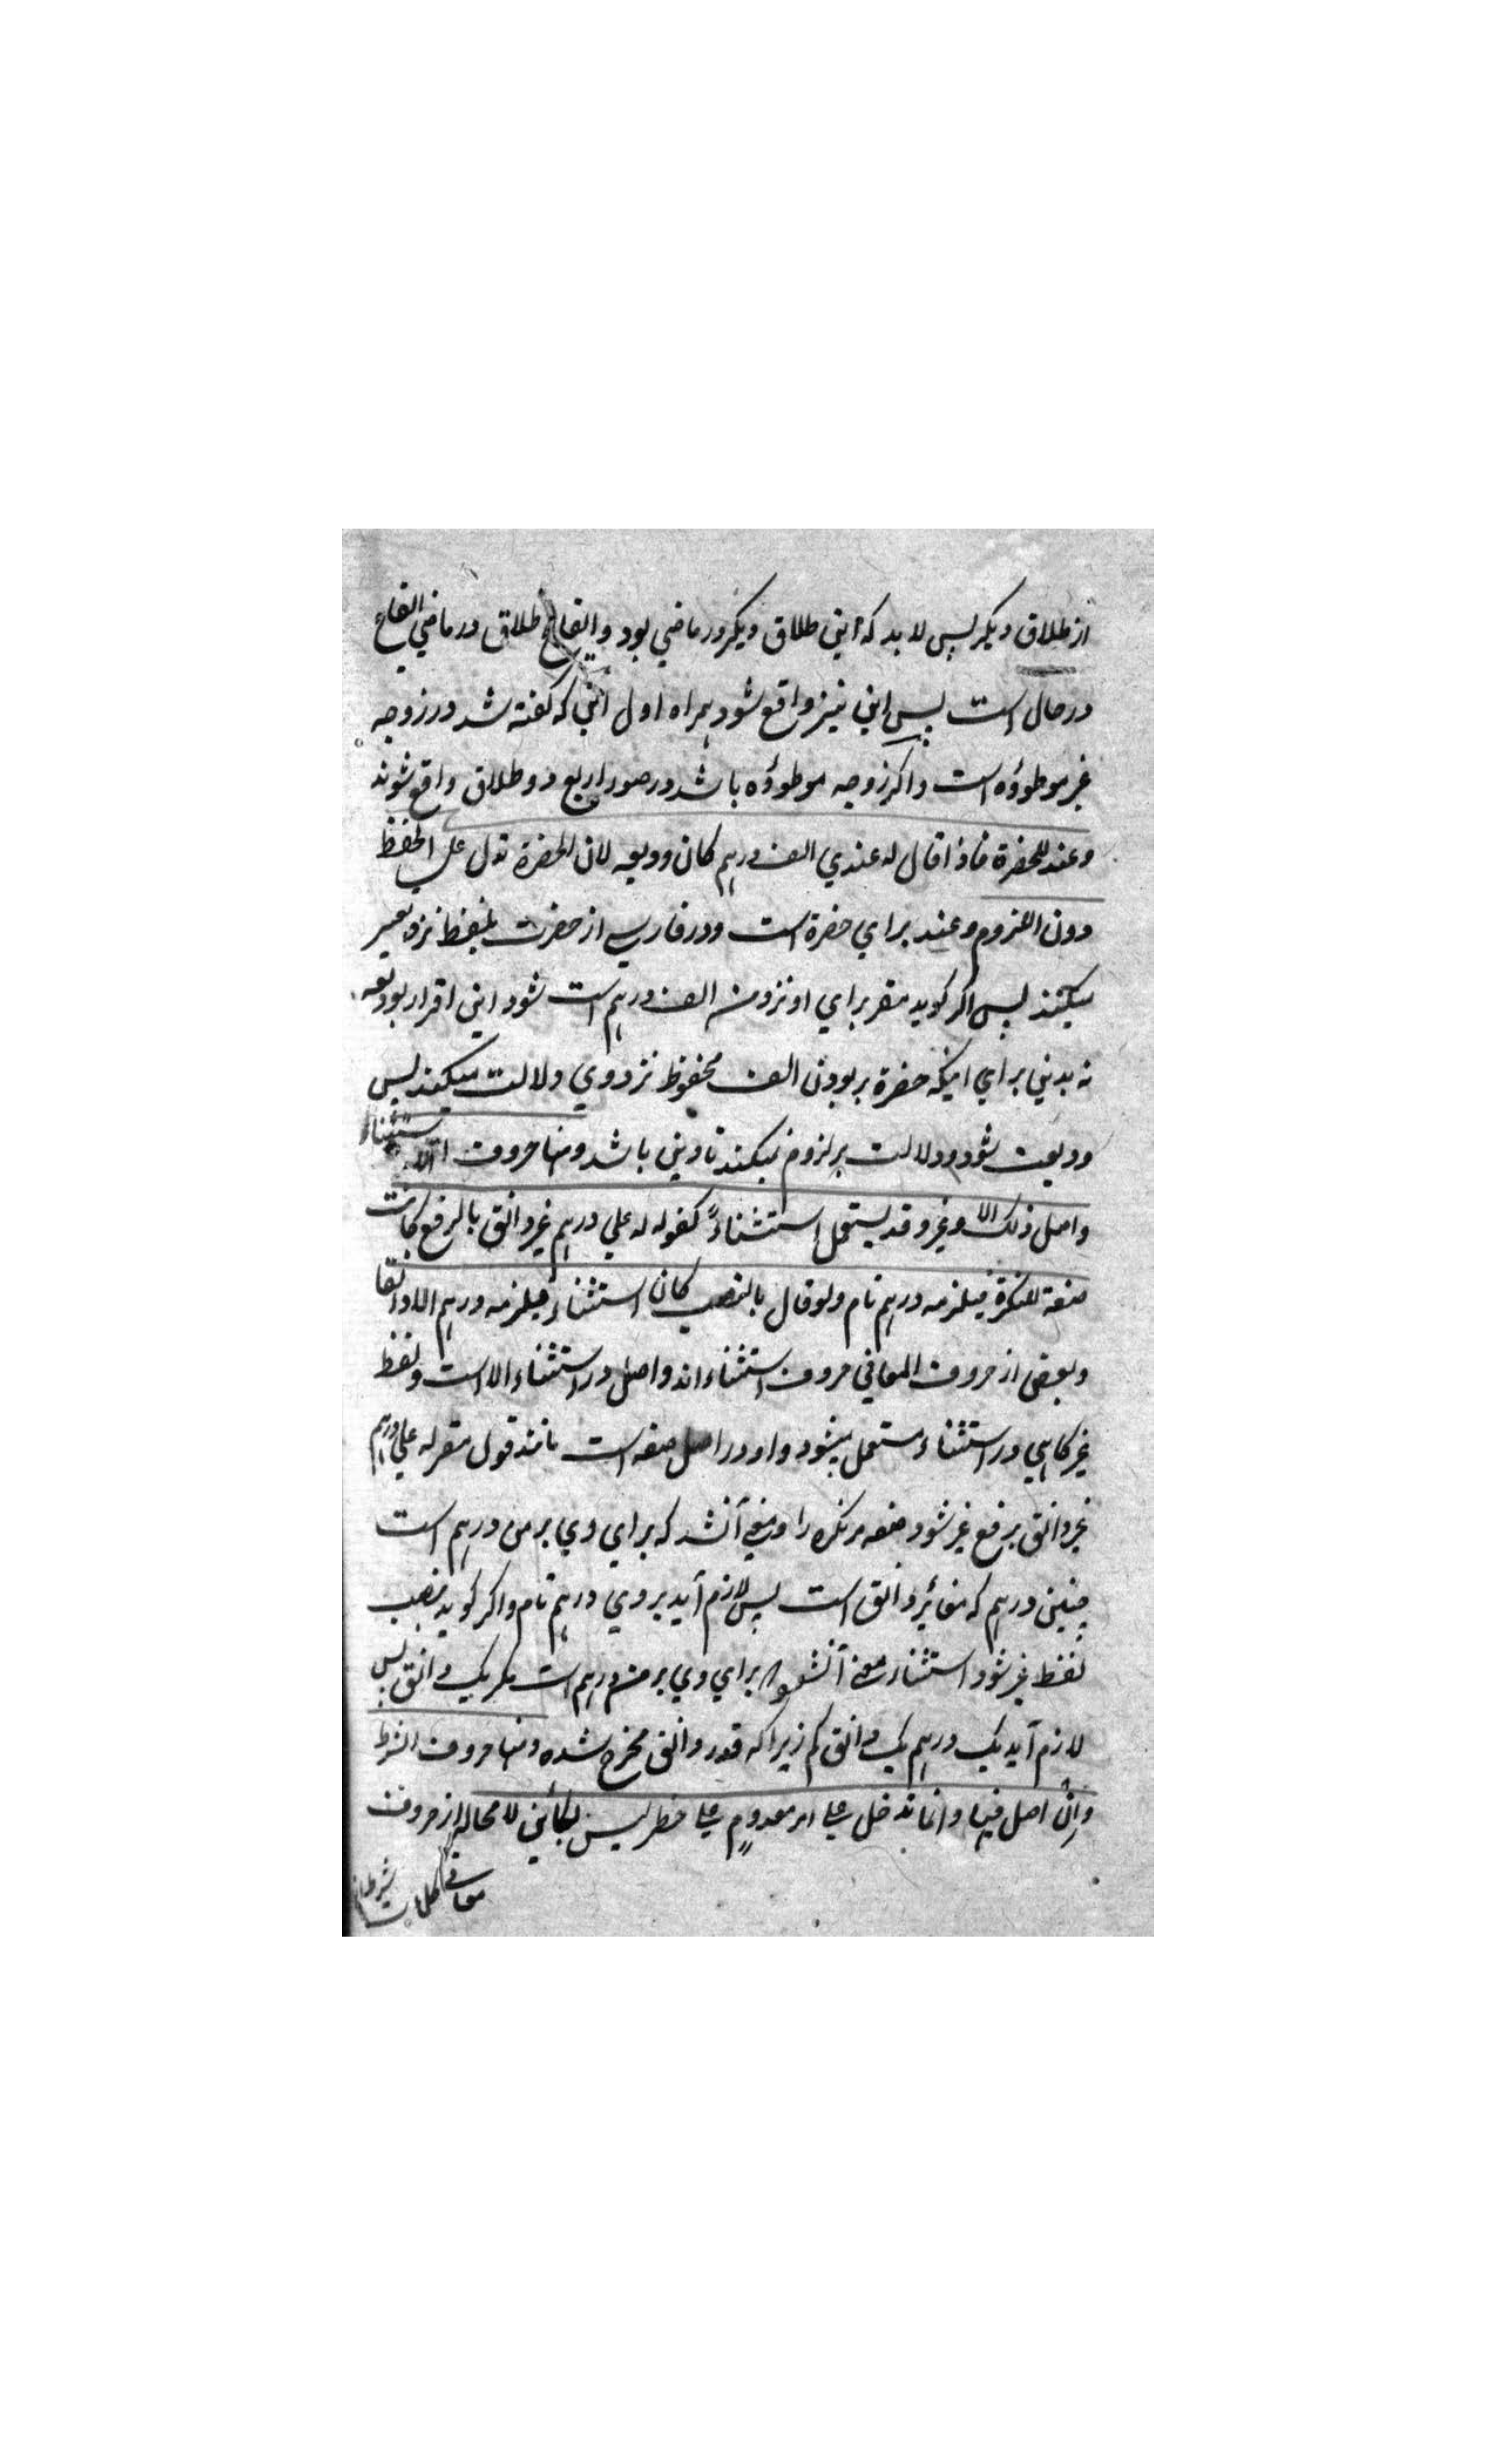 از طلاق دیگر پس لا بد که این طلاق دیگر در ماضی بود و ایقاع طلاق در ماضی ایقاع
در حال است پس این نیز واقع شود همراه اول این که گفته شد در زوجه
غیر موطوؤه است و اگر زوجه موطوؤه باشد در صور اربع دو طلاق واقع شوند
وعند للحضرة فاذا قال له عندي الف درهم كان وديعه لان الحضرة تدل علي الحفظ
دون اللزوم و عند برای حضرة است و در فارسی از حضرت بلفظ نزد تعبیر
میکنند پس اگر گوید مقر برای او نزد من الف درهم است شود این اقرار بودیعه
نه بدین برای اینکه حضرة بر بودن الف محفوظ نزد وی دلالت میکند پس
ودیعت شود و دلالت بر لزوم نمیکند تا دین باشد ومنها حروف استثناء
واصل ذلك الا وغير وقد يستعمل استثناءً كقوله له علي درهم غير دانق بالرفع كانت
صفة للنكرة فيلزمه درهم تام ولو قال بالنصب كان استثناء فيلزمه درهم الا دانقا
و بعض از حروف المعانی حروف استثناء اند و اصل در استثناء الا است و لفظ
غیر گاهی در استثناء مستعمل میشود و او در اصل صفه است مانند قول مقر له علي درهم
غير دانق برفع غیر شود صفه مر نکره را و معنی آنشد که برای وی بر من درهم است
چنین درهم که مغائر دانق است پس لازم آید بر وی درهم تام و اگر گوید بنصب
لفظ غیر شود استثناء معنی آنشد برای وی بر من درهم است مگر یک دانق پس
لازم آید یک درهم یک دانق کم زیرا که قدر دانق مخرج شده ومنها حروف الشرط
وإنْ اصل فيها وانما تدخل علي امر معدومٍ علي خطر ليس بكائن لا محالة از حروف
معانی کلمات شرط اند